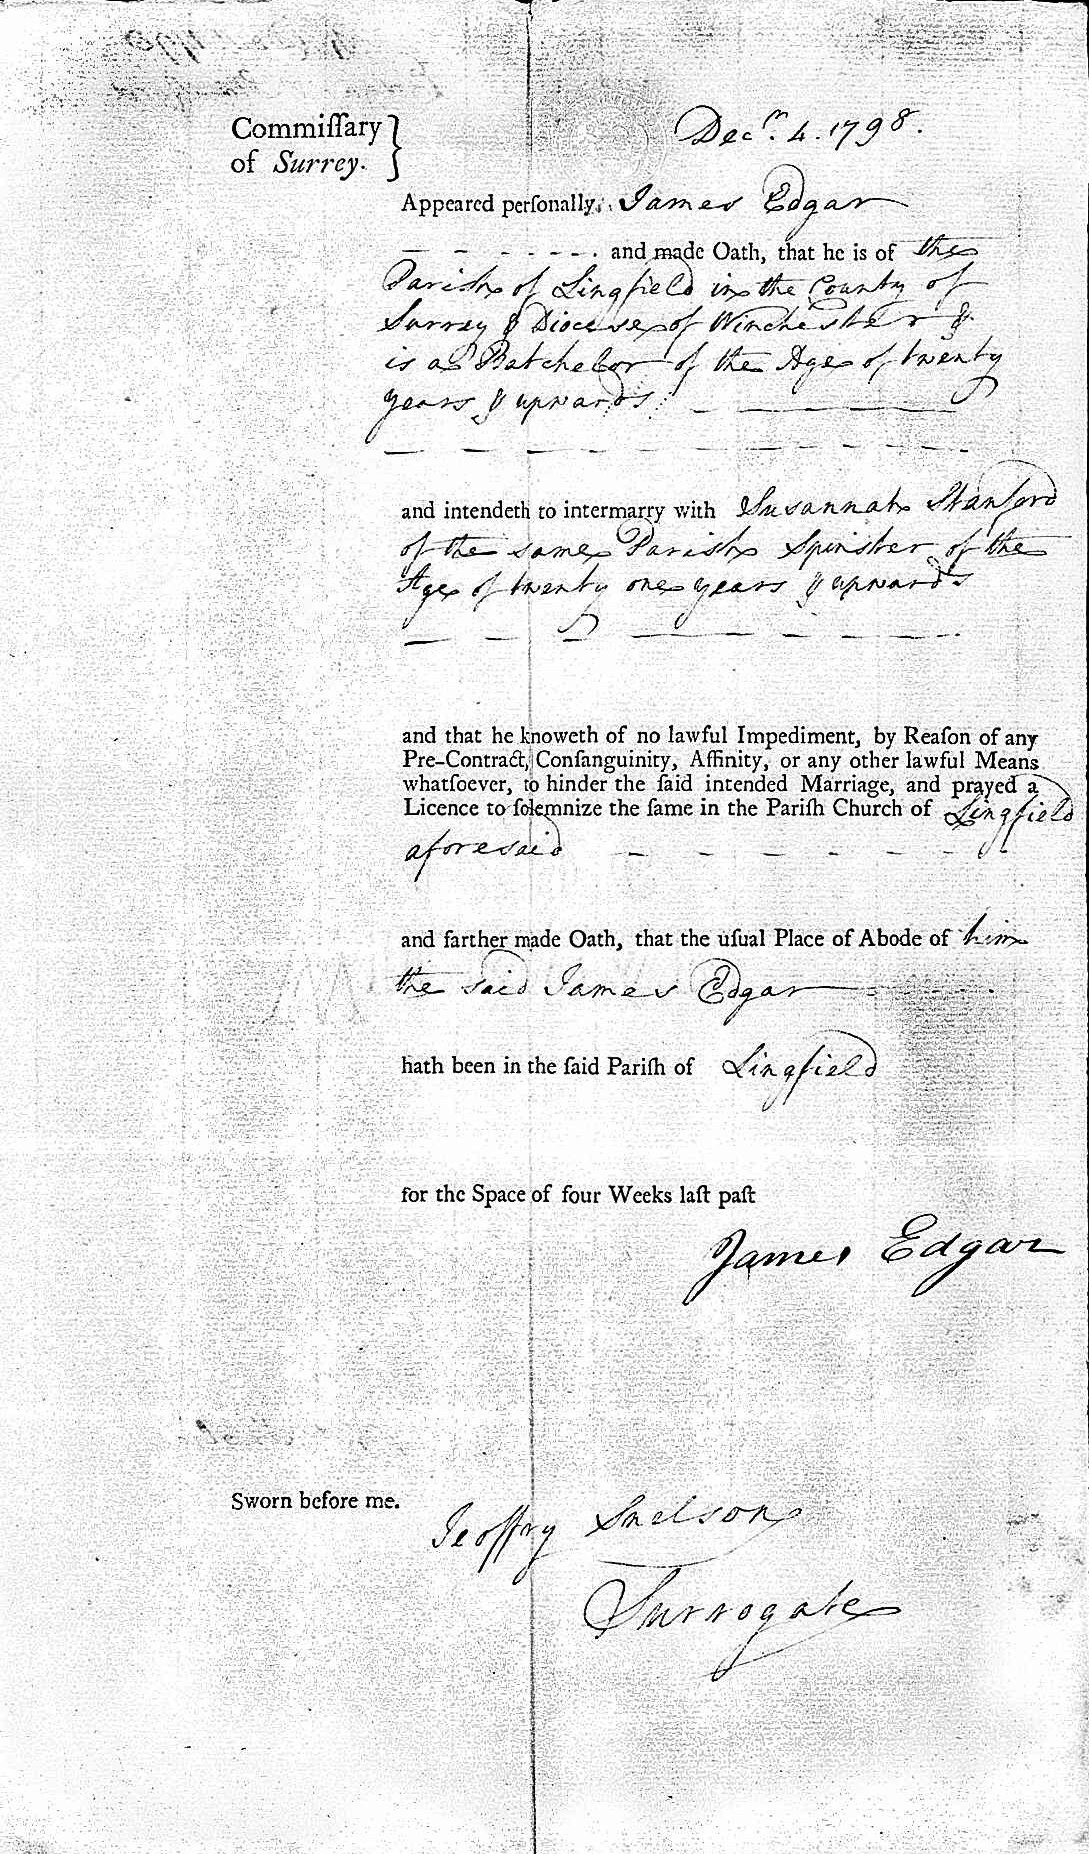 Commiſſary } Decr. 4. 1798.
of Surrey.
Appeared perſonally, James Edgar
and made Oath, that he is of the
Parish of Lingfield in the County of
Surrey & Diocese of Winchester &
is a Batchelor of the Age of twenty
years & upwards
and intendeth to intermarry with Susannah Stanford
of the same Parish Spinster of the
Age of twenty one years & upwards
and that he knoweth of no lawful Impediment, by Reaſon of any
Pre-Contract, Conſanguinity, Affinity, or any other lawful Means
whatſoever, to hinder the ſaid intended Marriage, and prayed a
Licence to ſolemnize the ſame in the Pariſh Church of Lingfield
aforesaid
and farther made Oath, that the uſual Place of Abode of him
the said James Edgar
hath been in the ſaid Pariſh of Lingfield
for the Space of four Weeks laſt paſt
James Edgar
Sworn before me.
Jeoffry Snelson
Surrogate